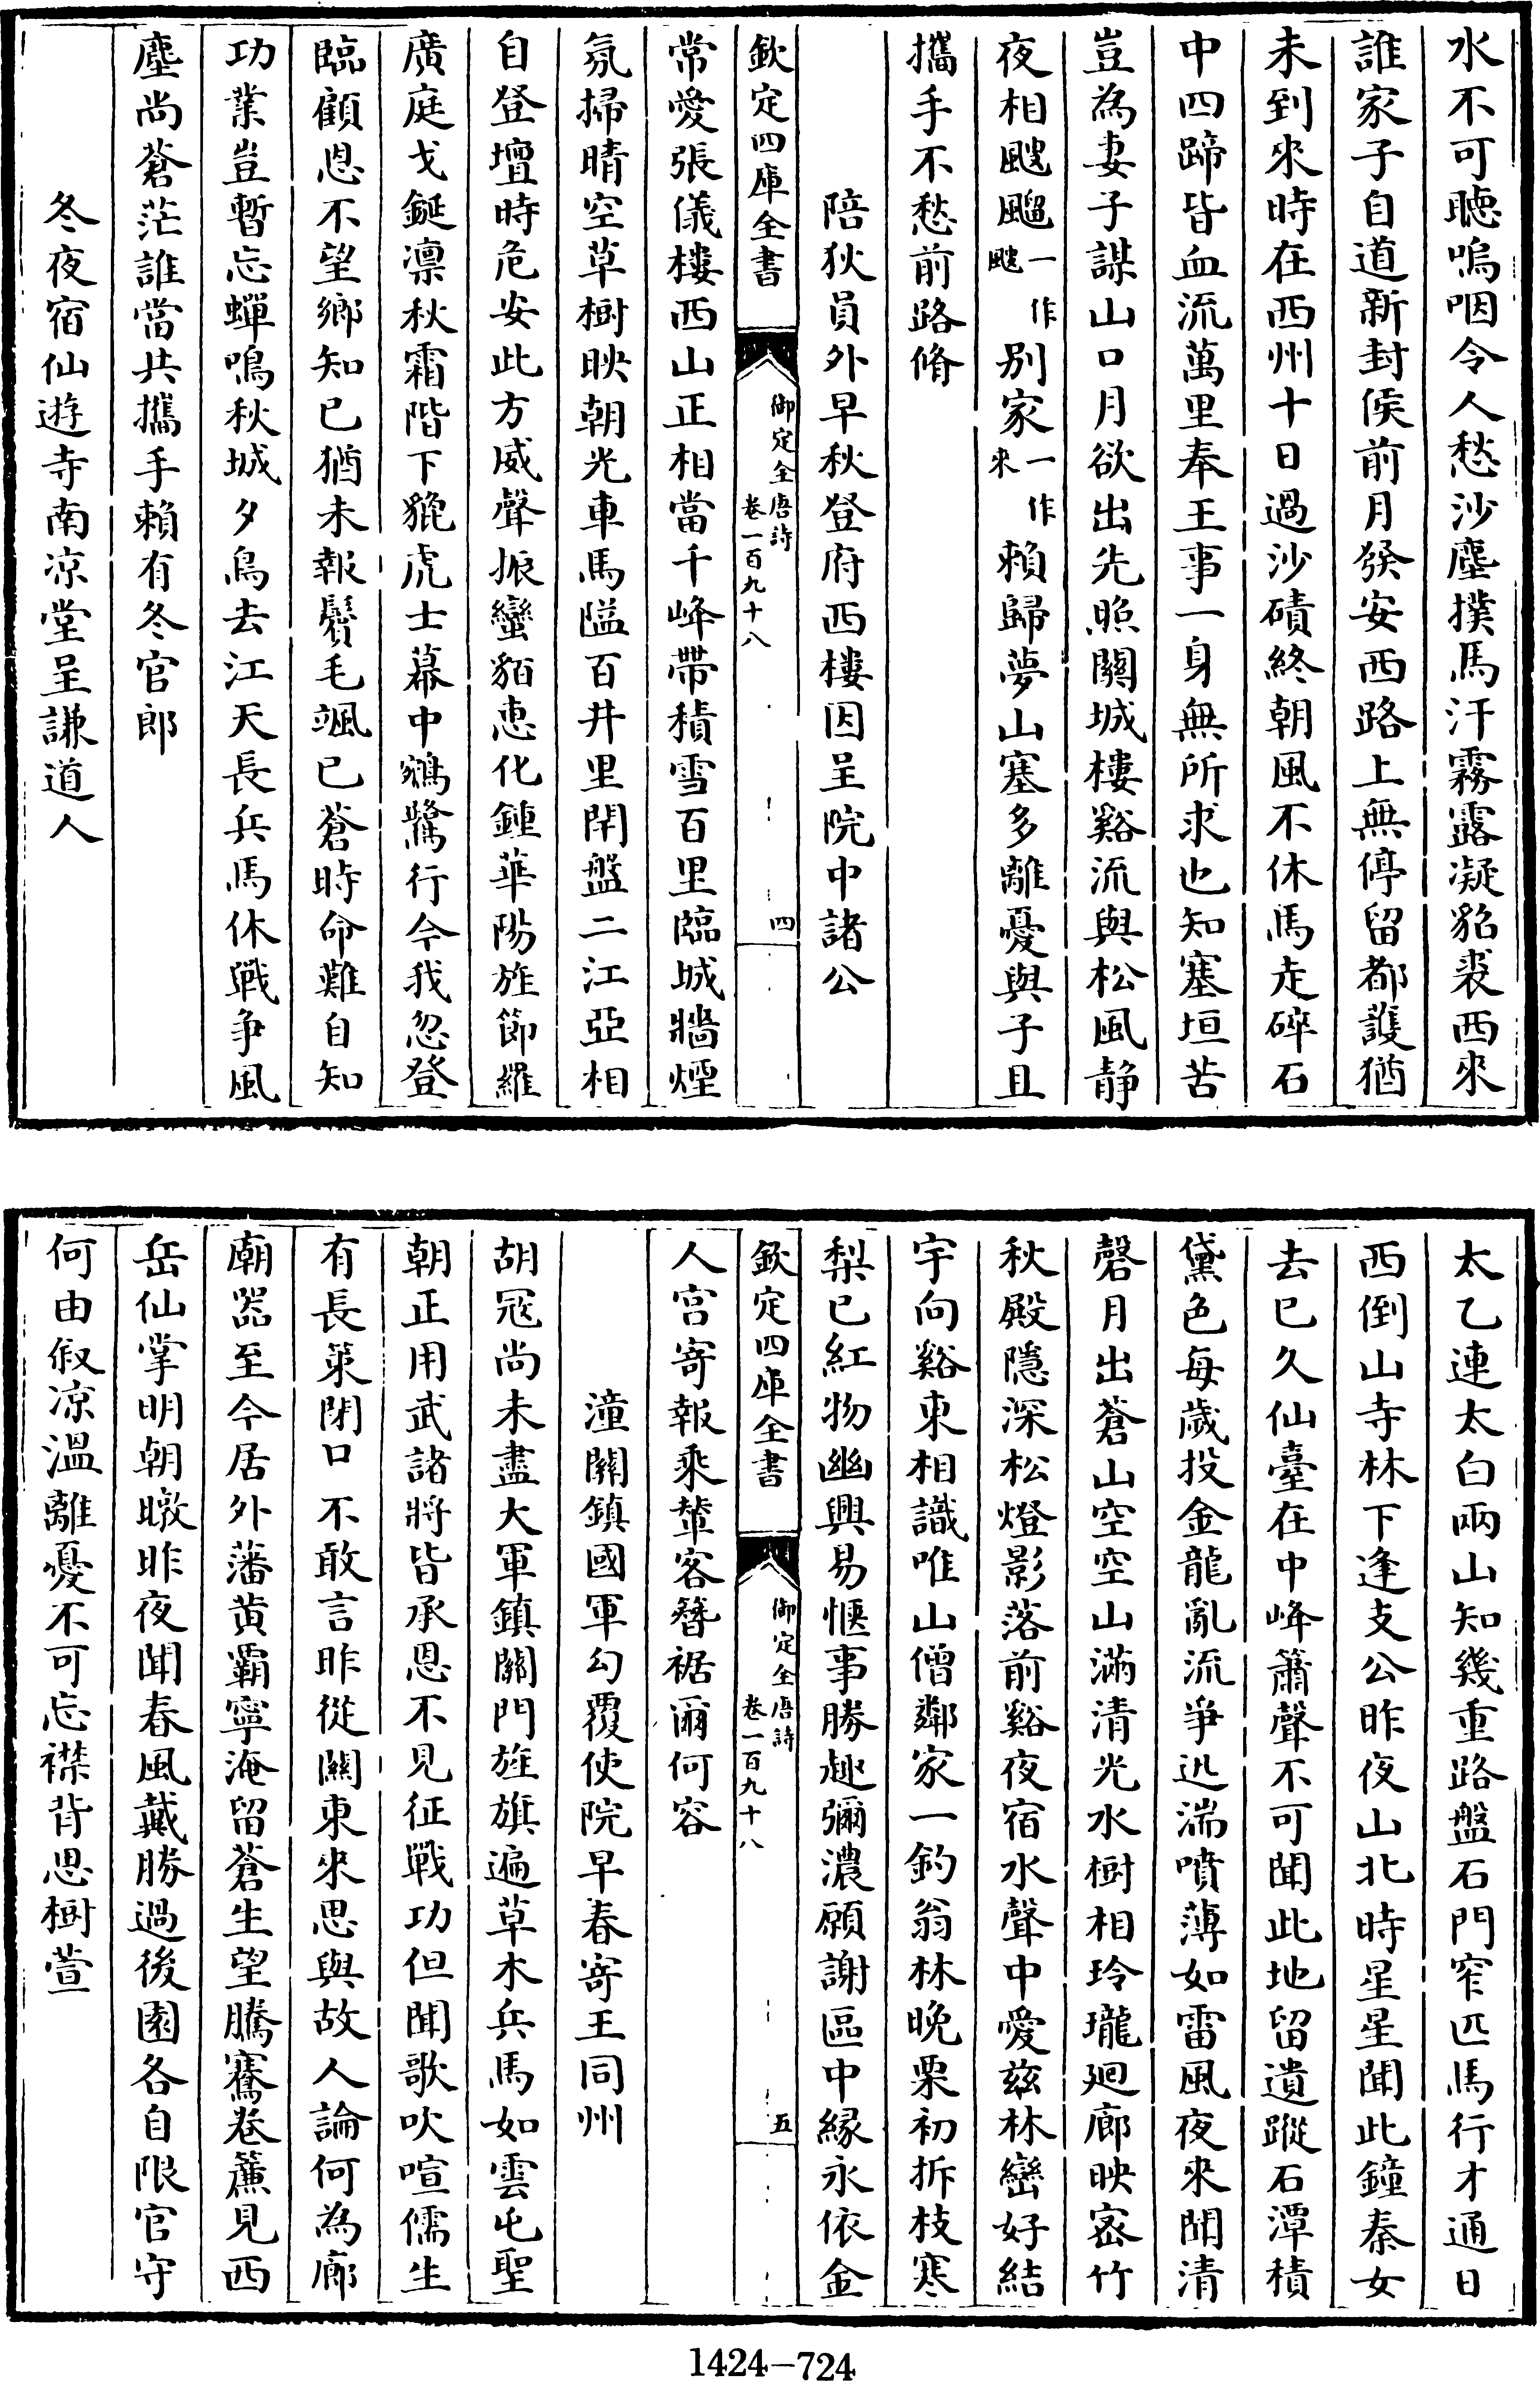 水不可聽嗚咽令人愁沙塵撲馬汗霧露凝貂裘西來
誰家子自道新封侯前月發安西路上無停留都護猶
未到來時在西州十日過沙磧終朝風不休馬走碎石
中四蹄皆血流萬里奉王事一身無所求也知塞垣苦
豈為妻子謀山口月欲出先照關城樓谿流與松風静
夜相颼飀一作颼别家一作來賴歸夢山塞多離憂與子且
攜手不愁前路脩
陪狄員外早秋登府西樓因呈院中諸公
欽定四庫全書
御定全唐詩
卷一百九十八
四
常愛張儀樓西山正相當千峰帶積雪百里臨城牆煙
氛掃晴空草樹映朝光車馬隘百井里閈盤二江亞相
自登壇時危安此方威聲振蠻貊惠化鍾華陽旌節羅
廣庭戈鋋凛秋霜階下貔虎士幕中鵷鷺行今我忽登
臨顧恩不望鄉知已猶未報鬢毛颯已蒼時命難自知
功業豈暫忘蟬鳴秋城夕鳥去江天長兵馬休戰争風
塵尚蒼茫誰當共攜手賴有冬官郎
冬夜宿仙遊寺南凉堂呈謙道人
太乙連太白兩山知幾重路盤石門窄匹馬行才通日
西倒山寺林下逢支公昨夜山北時星星聞此鐘秦女
去已久仙臺在中峰簫聲不可聞此地留遺蹤石潭積
黛色每歲投金龍亂流爭迅湍噴薄如雷風夜來聞清
磬月出蒼山空空山滿清光水樹相玲瓏廻廊映密竹
秋殿隱深松燈影落前谿夜宿水聲中愛兹林巒好結
宇向谿東相識唯山僧鄰家一釣翁林晚栗初拆枝寒
梨已紅物幽興易愜事勝趣彌濃願謝區中緣永依金
欽定四庫全書
御定全唐詩
卷一百九十八
五
人宫寄報乘輦客簪裾爾何容
潼關鎮國軍勾覆使院早春寄王同州
胡冦尚未盡大軍鎮關門旌旗遍草木兵馬如雲屯聖
朝正用武諸將皆承恩不見征戰功但聞歌吹喧儒生
有長策閉口不敢言昨從關東來思與故人論何為廊
廟器至今居外藩黄霸寧淹留蒼生望騰騫卷簾見西
岳仙掌明朝暾昨夜聞春風戴勝過後園各自限官守
何由叙凉溫離憂不可忘襟背思樹萱
1424-724